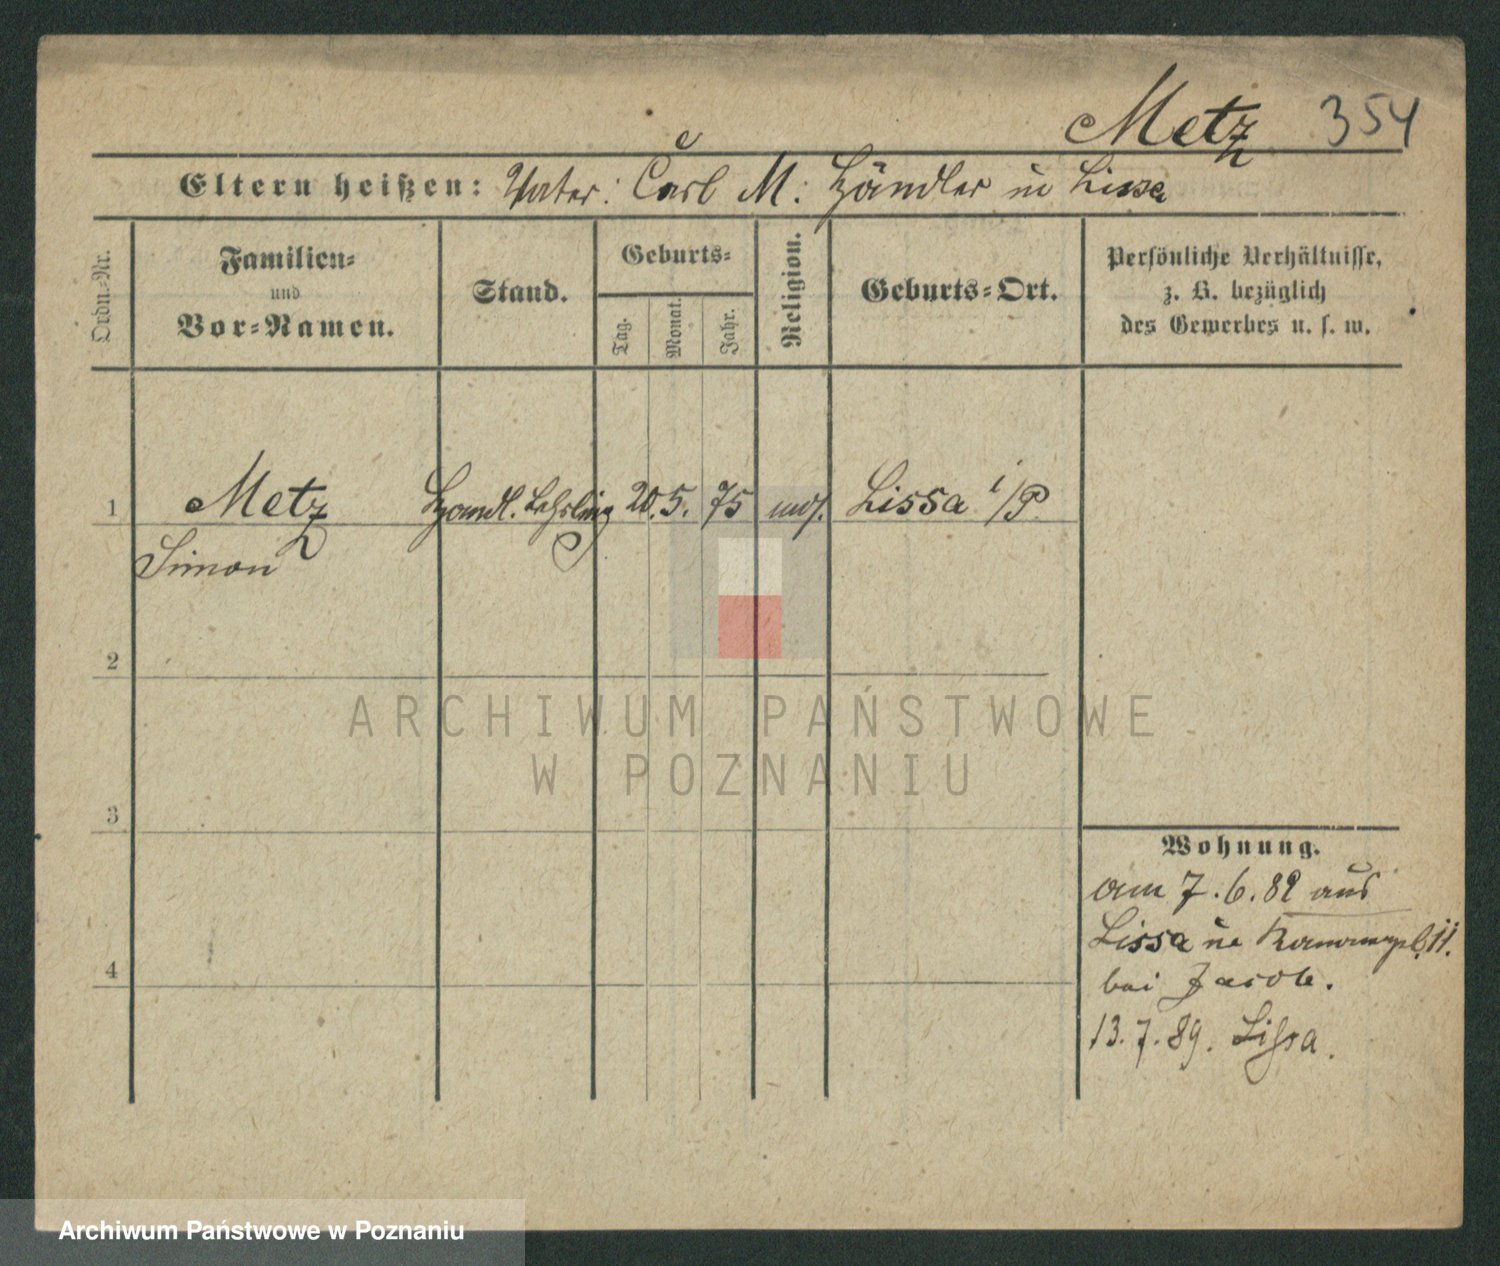 Metz 354
Eltern heißen: Vater: Carl M: Händler in Lissa
Ordn.-Nr.
Familien-
und
Vor-Namen.
Stand.
Geburts-
Tag.
Monat.
Jahr.
Religion.
Geburts-Ort.
Persönliche Verhältnisse,
z. B. bezüglich
des Gewerbes u. s. w.
1 Metz Handl. Lehrling 20. 5. 75 mos. Lissa i/P
Simon
2
3
4
Wohnung.
am 7. 6. 89 aus
Lissa n. 11.
bei Jacob.
13. 7. 89. Lissa.
ARCHIWUM PAŃSTWOWE
W POZNANIU
Archiwum Państwowe w Poznaniu